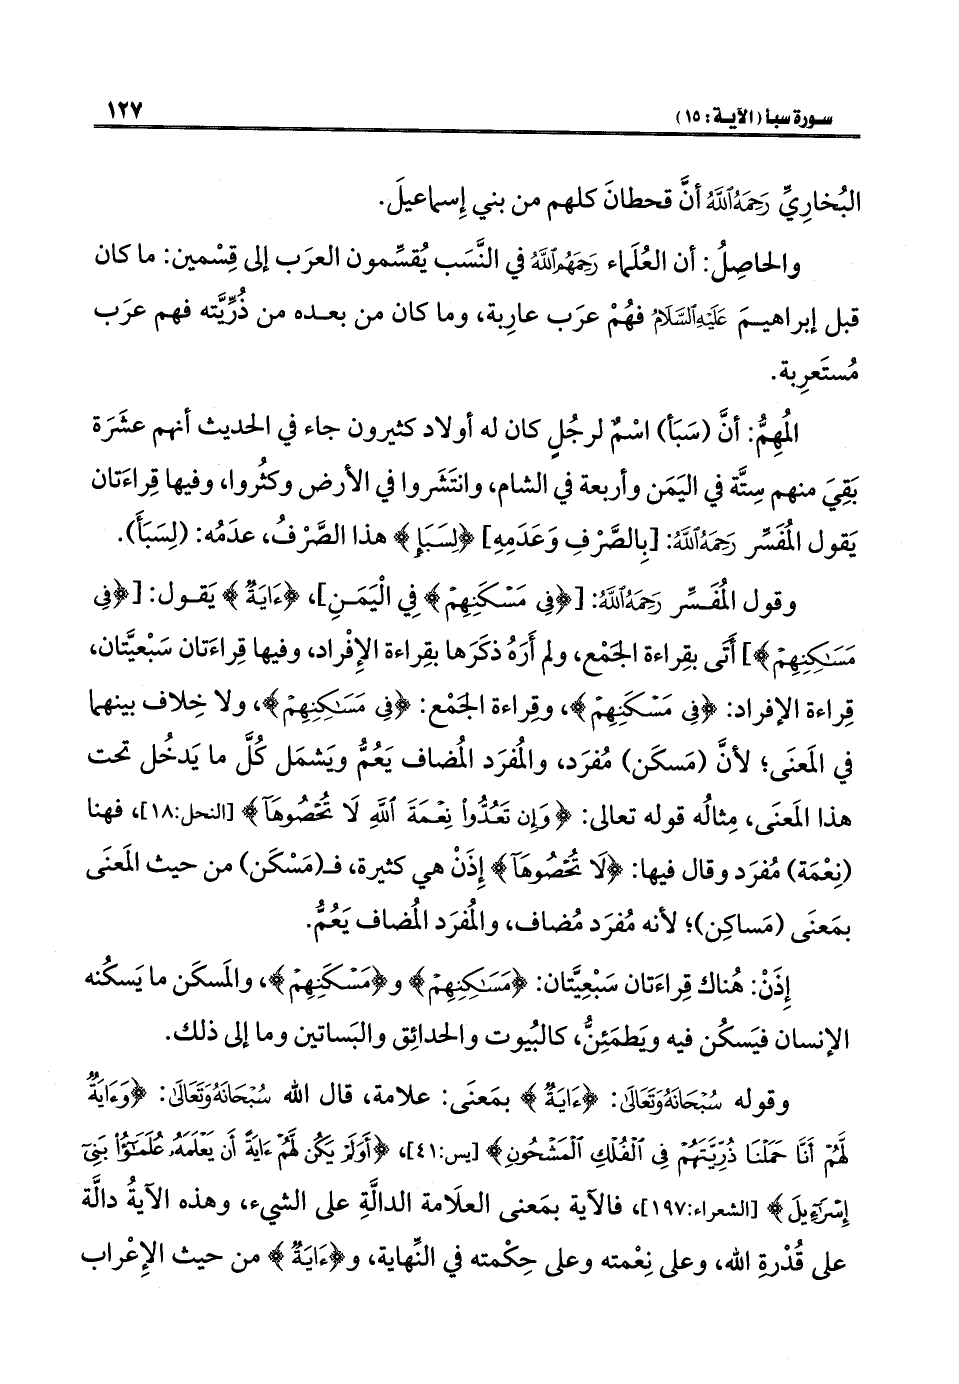 سورة سبأ (الآية: ١٥) ١٢٧
البُخاريِّ رَحِمَهُ ٱللَّهُ أنَّ قحطانَ كلهم من بني إسماعيلَ.
والحاصِلُ: أن العُلَماء رَحِمَهُمُ ٱللَّهُ في النَّسَب يُقسِّمون العرَب إلى قِسْمين: ما كان
قبل إبراهيمَ عَلَيْهِ ٱلسَّلَامُ فهُمْ عرَب عارِبة، وما كان من بعده من ذُرِّيَّته فهم عرَب
مُستَعرِبة.
المُهِمُّ: أنَّ (سَبَأ) اسْمٌ لرجُلٍ كان له أولاد كثيرون جاء في الحديث أنهم عشَرة
بَقِيَ منهم سِتَّة في اليَمَن وأربعة في الشام، وانتَشَروا في الأرض وكثُروا، وفيها قِراءَتان
يَقول المُفَسِّر رَحِمَهُ ٱللَّهُ: [بِالصَّرْفِ وَعَدَمِهِ] ﴿لِسَبَإٍ﴾ هذا الصَّرْفُ، عدَمُه: (لِسَبَأَ).
وقول المُفَسِّر رَحِمَهُ ٱللَّهُ: [﴿فِي مَسْكَنِهِمْ﴾ فِي الْيَمَنِ]، ﴿ءَايَةٌ﴾ يَقول: [﴿فِي
مَسَٰكِنِهِمْ﴾] أَتَى بقِراءة الجَمْع، ولم أَرَهُ ذكَرَها بقِراءة الإِفْراد، وفيها قِراءَتان سَبْعيَّتان،
قِراءة الإفراد: ﴿فِي مَسْكَنِهِمْ﴾، وقِراءة الجَمْع: ﴿فِي مَسَٰكِنِهِمْ﴾، ولا خِلاف بينهما
في المَعنَى؛ لأنَّ (مَسكَن) مُفرَد، والمُفرَد المُضاف يَعُمُّ ويَشمَل كُلَّ ما يَدخُل تحت
هذا المَعنَى، مِثالُه قوله تعالى: ﴿وَإِن تَعُدُّواْ نِعْمَةَ ٱللَّهِ لَا تُحْصُوهَآ﴾ [النحل:١٨]، فهنا
(نِعْمَة) مُفرَد وقال فيها: ﴿لَا تُحْصُوهَآ﴾ إِذَنْ هي كثيرة، فـ(مَسْكَن) من حيث المَعنَى
بمَعنَى (مَساكِن)؛ لأنه مُفرَد مُضاف، والمُفرَد المُضاف يَعُمُّ.
إِذَنْ: هُناك قِراءَتان سَبْعيَّتان: ﴿مَسَٰكِنِهِمْ﴾ و﴿مَسْكَنِهِمْ﴾، والمَسكَن ما يَسكُنه
الإنسان فيَسكُن فيه ويَطمَئِنُّ، كالبُيوت والحدائِق والبَساتين وما إلى ذلك.
وقوله سُبْحَانَهُ وَتَعَالَىٰ: ﴿ءَايَةٌ﴾ بمَعنَى: علامة، قال الله سُبْحَانَهُ وَتَعَالَىٰ: ﴿وَءَايَةٌ
لَّهُمْ أَنَّا حَمَلْنَا ذُرِّيَّتَهُمْ فِي ٱلْفُلْكِ ٱلْمَشْحُونِ﴾ [يس:٤١]، ﴿أَوَلَمْ يَكُن لَّهُمْ ءَايَةً أَن يَعْلَمَهُۥ عُلَمَٰٓؤُاْ بَنِيٓ
إِسْرَٰٓءِيلَ﴾ [الشعراء:١٩٧]، فالآية بمَعنى العلَامة الدالَّةِ على الشيء، وهذه الآيةُ دالَّة
على قُدْرةِ الله، وعلى نِعْمته وعلى حِكْمته في النِّهاية، و﴿ءَايَةٌ﴾ من حيث الإِعْراب